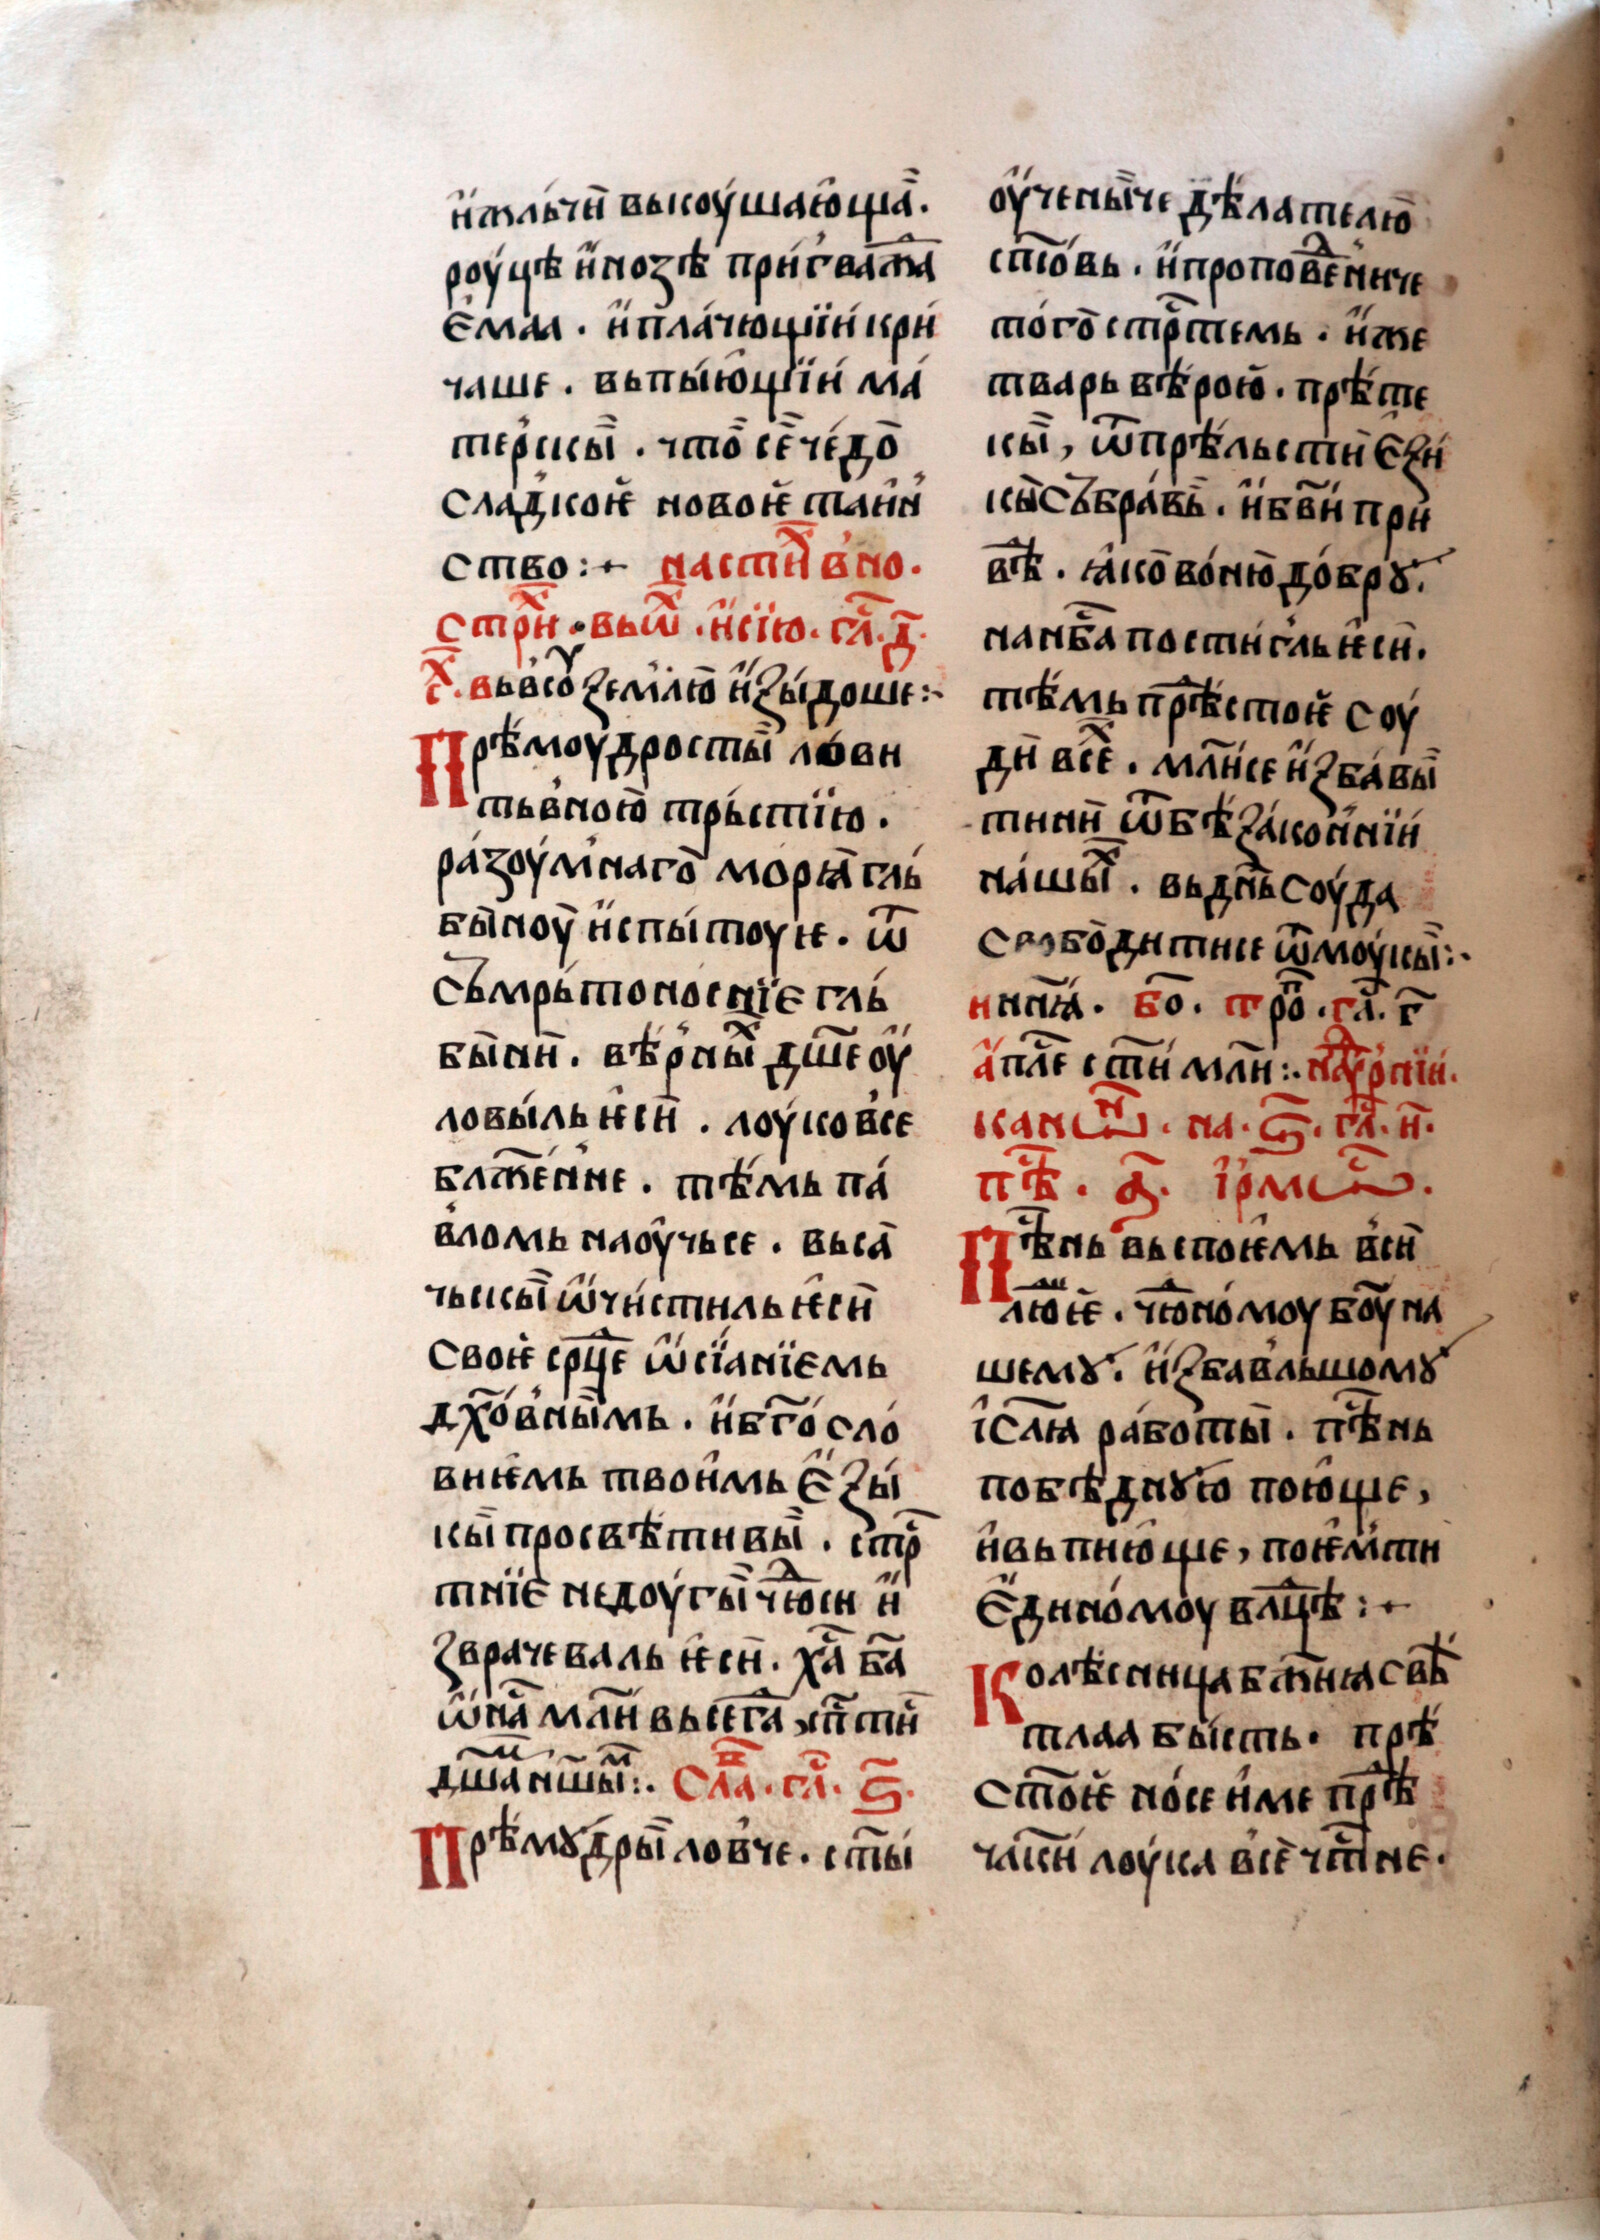 и҆жльчи высоу́шаю҆ща̑.
роу́цѣ и҆нозѣ при́гваж҇да
е҆маа. и҆пла́чющїи́ кри
чаше. вьпы́ю҆щїи́ ма́
те́рскы̏. что̀ сѐ че́до̀
сла́дкоѥ҆ новоѥ҆ таи҆н
ство:· настиⷯ в҆но.
стриⷯ. вьѿ. и҆сїю. гл҃. д҃.
гⷯ. вьв҆сю̀ зем҆лю̀ и҆зы́доше:·
Прѣмоудросты̏ лови
тьв҆ною̀ трьстїю.
ра́зоум҆наго̀ морꙗ̀ гль
бы̏ноу̀ и҆спы́тоуѥ. ѿ
съмрьтоноснїе гль
бы̏ни. вѣр҆ныⷯ дш҃е оу҆
ловы́ль ѥ҆си̏. лоу́ко в҆се
блаже́нне. тѣ́мь па́
в҆ломь наоу҆чьсе. вьса̀
чьскы̏ ѡ҆чи́стиль ѥ҆си̏
своѥ҆ срⷣце ѡ҆сїа҆нїемь
дх҃о́в҆ны̏мь. и҆бг҃осло́
виѥмь твои҆мь е҆зы́
кы̏ просвѣтивы̏. стрⷭ
тнїе недоу́гы̏ чл҃ю́си и҆
зврачеваль ѥ҆си̏. хⷭ҇а бг҃а
ѡ҆наⷭ҇ мл҃и вьсегⷣа, сп҃сти
дш҃а нш҃ыⷨ:· Слⷡ҇а. гл҃. ѕ҃.
Прѣмꙋ́дры̏ лов҆че. ст҃ы́
оу҆чены̏че дѣлателю̀
ст҃ѡвь. и҆проповⷣе́ниче
то́го̀ стрⷭ҇темь. и҆же
тварь вѣрою̀. прѣте
кы̏, ѿпрѣльсти̏ е҆зи
кы̏ събра́вь̏. и҆бв҃и при
вⷣѣ. ꙗ҆ко̀ во́ню̀ до́брꙋ.
нан҃бса пости́гль ѥ҆си̏.
тѣ́мь прⷭ҇ѣстоѥ҆ соу
ди̏ всѣⷯ. мл҃и́се и҆зба́вы̏
тини̏ ѿбѣза́кон҆нїи́
на́шыⷯ. вьдн҃ь соу́да
свобо̀дитисе ѿмоу́кы̏:·
ниня҃. бо҃. троⷫ. гл҃. г҃
а҆пⷭ҇ле ст҃и мл҃и:· наоу҆трни́.
канѡⷩ. на. ѕ҃. гл҃. и҃.
пⷭ҇ѣ. а҃. і҆рмѡⷭ.
Пⷭ҇ѣнь вьспоѥ҆мь в҆си̏
люⷣѥ҆. чюⷣно́моу бо҃у на
шемꙋ. и҆збав҆льшомꙋ
і҆сл҃ꙗ ра́боты̏. пⷭ҇ѣнь
побѣднꙋю̀ пою҆ще,
и҆вьпи́ю҆ще, поѥ҆м҆ти
е҆дино́моу влⷣцѣ:·
Колѣсница бж҃иꙗ свѣ
тлаа бы́сть. прѣ
ст҃оѥ҆ но́се и҆ме прⷭ҇ѣ
чл҃кы́и лоу́ка в҆сѐ чⷭ҇тне.